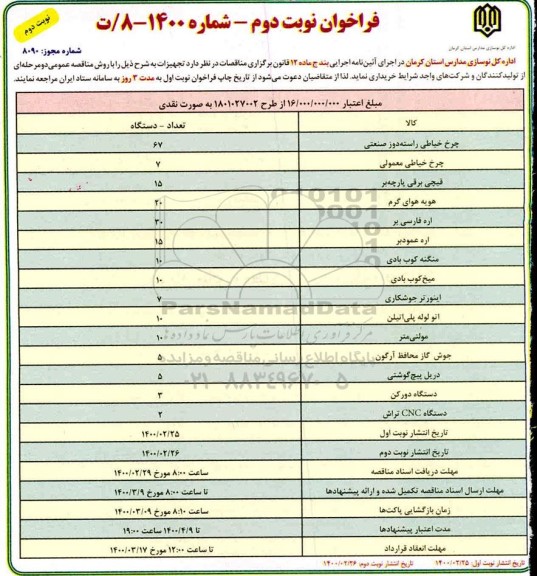 نوبت دوم
فراخوان نوبت دوم – شماره ۱۴۰۰-۸/ت
اداره کل نوسازی مدارس استان کرمان
شماره مجوز: ۸۰۹۰
اداره کل نوسازی مدارس استان کرمان در اجرای آئین‌نامه اجرایی بند ج ماده ۱۲ قانون برگزاری مناقصات در نظر دارد تجهیزات به شرح ذیل را با روش مناقصه عمومی دو مرحله‌ای
از تولیدکنندگان و شرکت‌های واجد شرایط خریداری نماید. لذا از متقاضیان دعوت می‌شود از تاریخ چاپ فراخوان نوبت اول به مدت ۳ روز به سامانه ستاد ایران مراجعه نمایند.
مبلغ اعتبار ۱۶/۰۰۰/۰۰۰/۰۰۰ از طرح ۱۸۰۱۰۲۷۰۰۲ به صورت نقدی
کالا تعداد – دستگاه
چرخ خیاطی راسته‌دوز صنعتی ۶۷
چرخ خیاطی معمولی ۷
قیچی برقی پارچه‌بر ۱۵
هویه هوای گرم ۲۰
اره فارسی بر ۳۰
اره عمودبر ۱۵
منگنه کوب بادی ۱۰
میخ‌کوب بادی ۱۰
اینورتر جوشکاری ۷
اتو لوله پلی‌اتیلن ۱۰
مولتی‌متر ۱۰
جوش گاز محافظ آرگون ۵
دریل پیچ‌گوشتی ۵
دستگاه دورکن ۳
دستگاه CNC تراش ۲
تاریخ انتشار نوبت اول ۱۴۰۰/۰۲/۲۵
تاریخ انتشار نوبت دوم ۱۴۰۰/۰۲/۲۶
مهلت دریافت اسناد مناقصه ساعت ۸:۰۰ مورخ ۱۴۰۰/۰۲/۲۹
مهلت ارسال اسناد مناقصه تکمیل شده و ارائه پیشنهادها تا ساعت ۸:۰۰ مورخ ۱۴۰۰/۳/۹
زمان بازگشایی پاکت‌ها ساعت ۸:۱۰ مورخ ۱۴۰۰/۰۳/۰۹
مدت اعتبار پیشنهادها تا ۱۴۰۰/۴/۹ ساعت ۱۹:۰۰
مهلت انعقاد قرارداد تا ساعت ۱۲:۰۰ مورخ ۱۴۰۰/۰۳/۱۷
تاریخ انتشار نوبت اول: ۱۴۰۰/۰۲/۲۵ تاریخ انتشار نوبت دوم: ۱۴۰۰/۰۲/۲۶
ParsNamadData
مرکز فرآوری اطلاعات پارس نماد داده‌ها
پایگاه اطلاع رسانی مناقصه و مزایده
۰۲۱-۸۸۳۴۹۶۷۰-۵